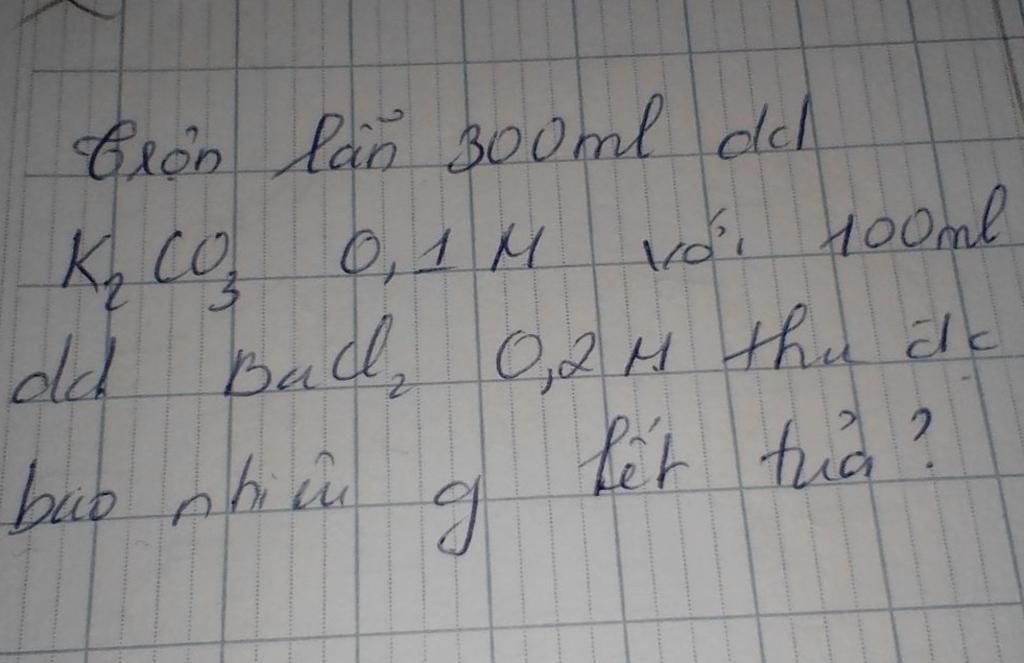 trộn lẫn 300ml dd
K₂CO₃ 0,1M với 100ml
dd BaCl₂ 0,2M thu đc
bao nhiêu g kết tủa?